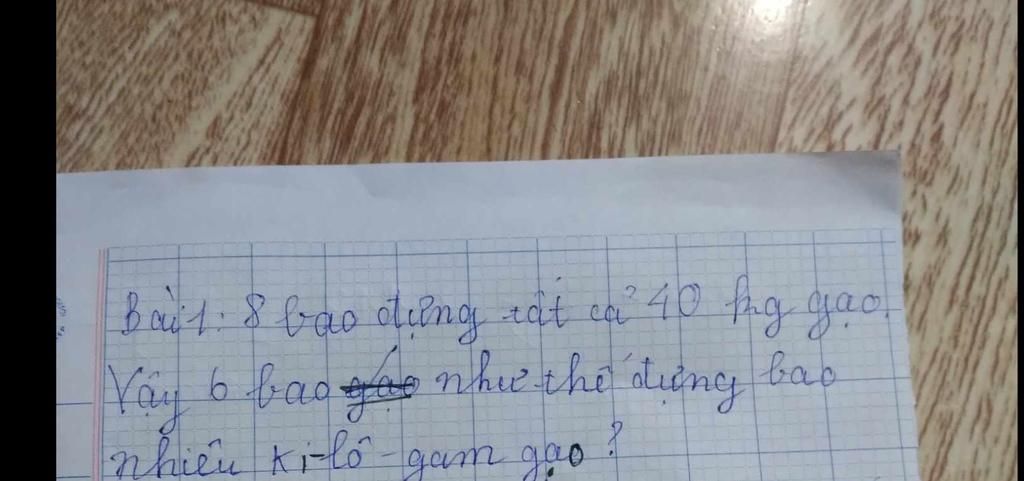 Bài 1: 8 bao đựng tất cả 40 kg gạo.
Vậy 6 bao như thế đựng bao
nhiêu ki-lô-gam gạo?